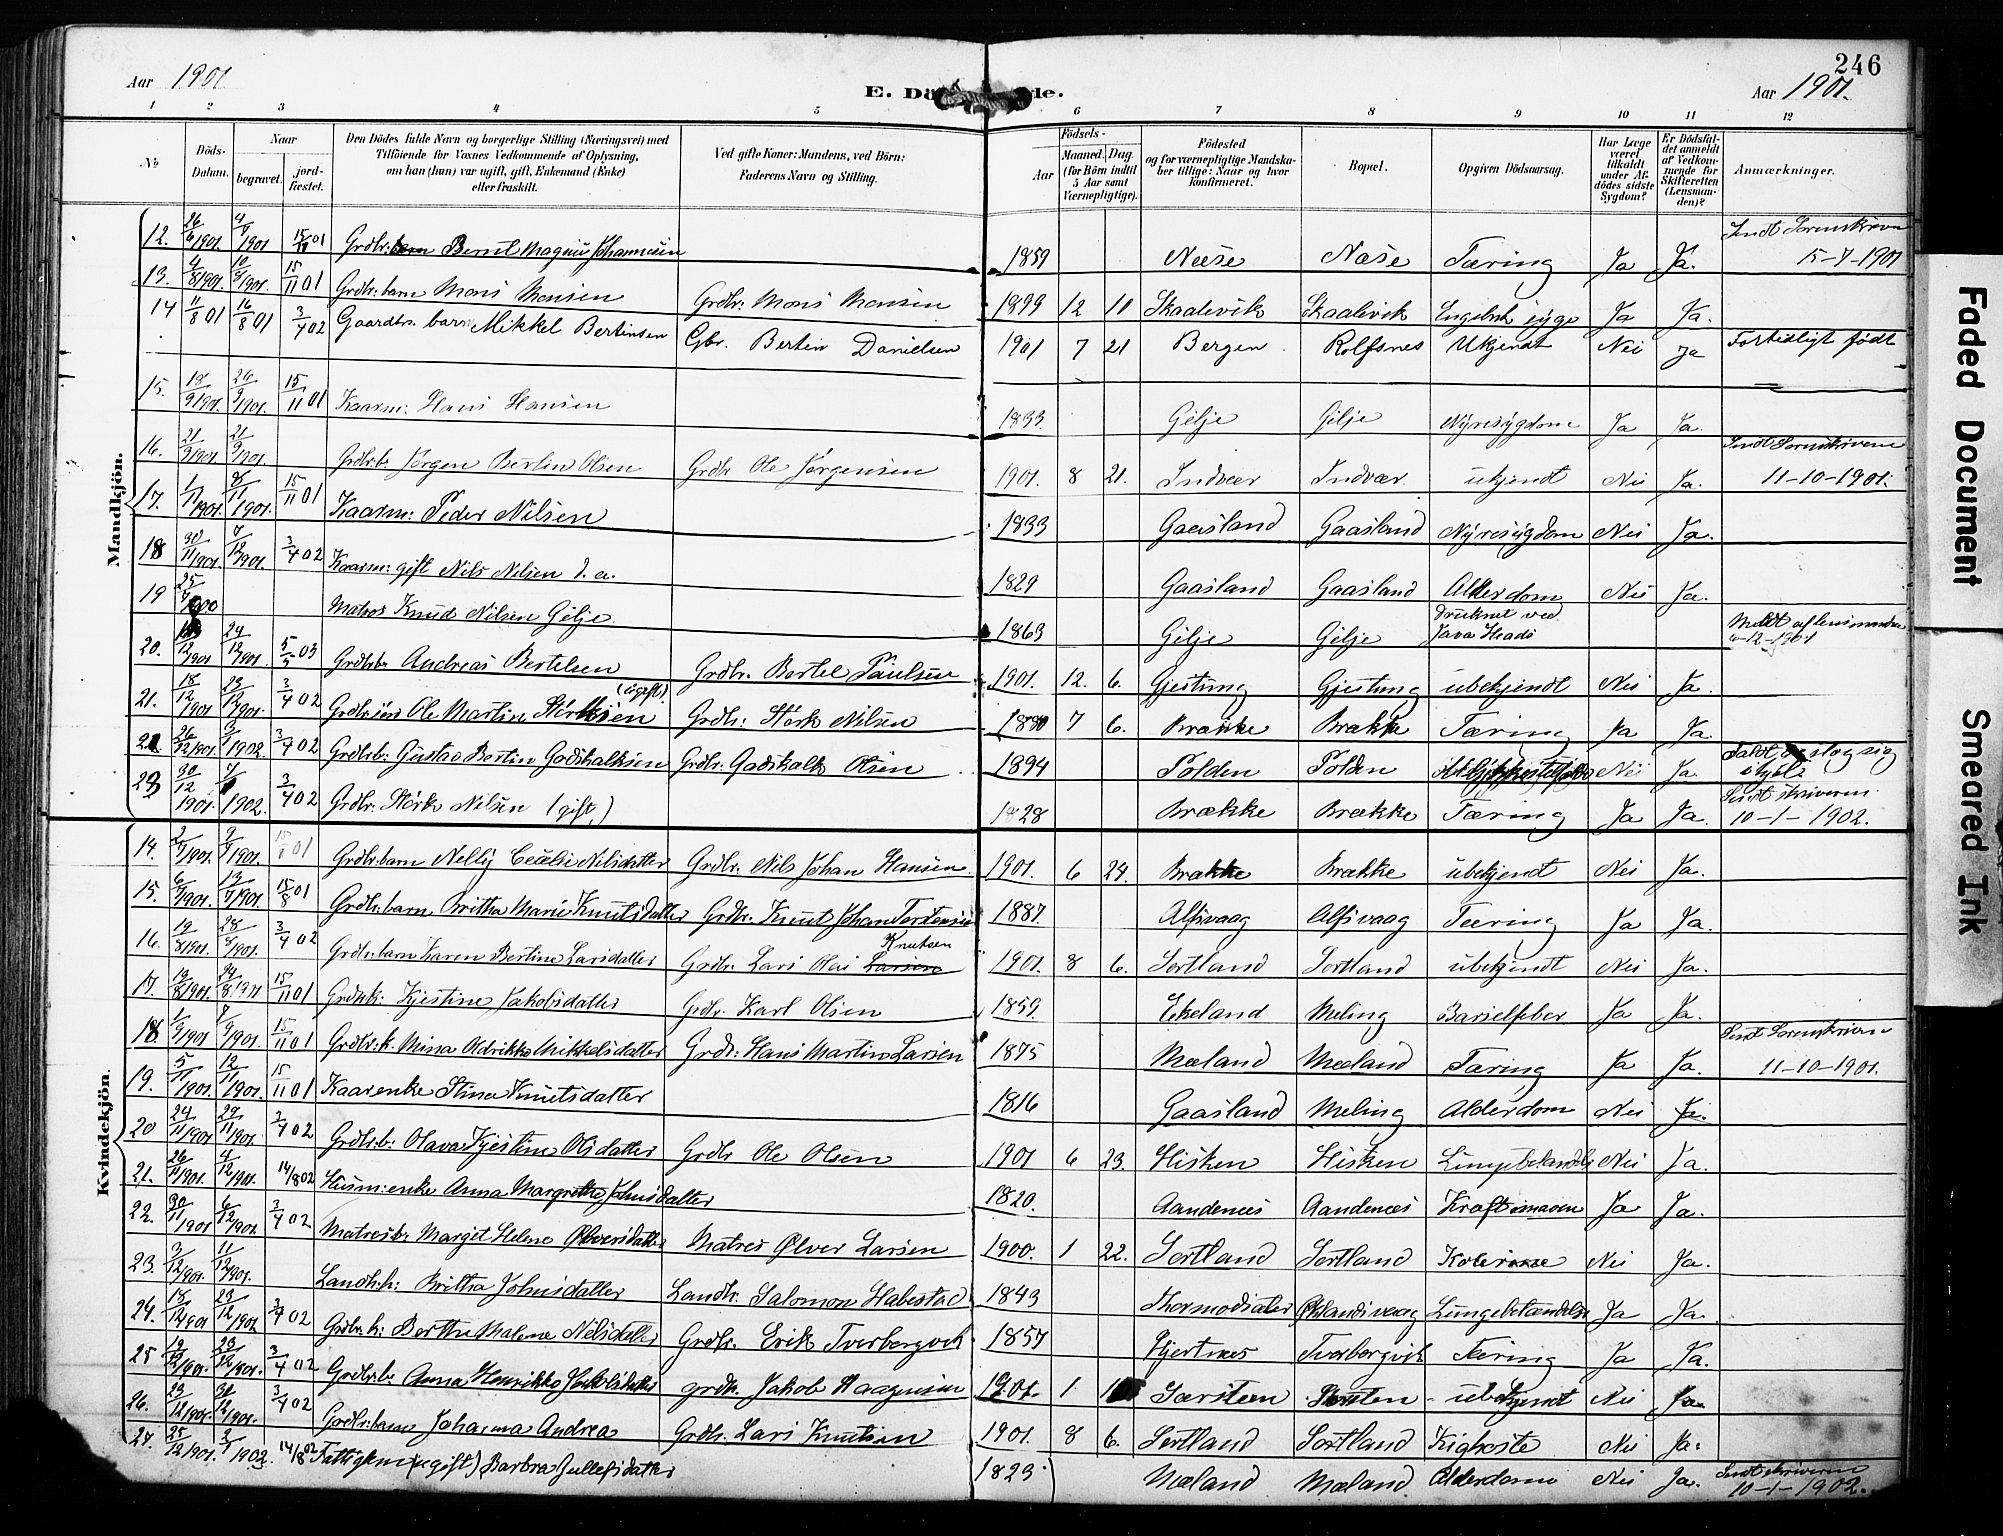 246
Aar 1901.
E. Dö de.
Aar 1901.
1 2 3 4 5 6 7 8 9 10 11 12
No
Döds-Datum.
Naar
begravet.
jord-fæstet.
Den Dödes fulde Navn og borgerlige Stilling (Næringsvei) med
Tilföiende for Voxnes Vedkommende af Oplysning,
om han (hun) var ugift, gift, Enkemand (Enke)
eller fraskilt.
Ved gifte Koner: Mandens, ved Börn:
Faderens Navn og Stilling.
Födsels-
Aar
Maaned. Dag.
(for Börn indtil
5 Aar samt
Værnepligtige).
Födested
og for værnepligtige Mandska-
ber tillige: Naar og hvor
konfirmeret.
Bopæl.
Opgiven Dödsaarsag.
Har Læge
været
tilkaldt
under Af-
dödes sidste
Sygdom?
Er Dödsfal-
det anmeldt
af Vedkom-
mende for
Skifteretten
(Lensman-
den)?
Anmærkninger.
Mandkjön.
12. 26/6 1901 4/7 1901 15/11 01 Grdbr. Bernt Magnus Johannesen 1859 Næse Næse Tæring Ja Ja. Indt Sorenskriven 15-7-1901
13. 4/8 1901. 10/8 1901. 15/11 01 Grdbr: barn Mons Monsen Grdbr: Mons Monsen 1899 12 10 Skaalevik Skaalevik Engelsk syge Ja Ja.
14 11/8 01 16/8 01 3/4 02 Gaardbr. barn Mikkel Bertinsen Gbr. Bertin Danielsen 1901 7 21 Bergen Rolfsnes Ukjendt Nei Ja Fortidligt født
15. 18/9 1901. 26/9 1901. 15/11 01 Kaarm: Hans Hansen 1833 Gilje Gilje Nyresygdom Ja Ja.
16. 21/9 1901 21/9 1901 Grdbrb. Jørgen Bertin Olsen Grdbr Ole Jørgensen 1901. 8 21. Indvær Indvær ukjendt Nei Ja. Indt Sorenskriveren 11-10-1901.
17. 1/11 1901 8/11 1901. 15/11 01 Kaarm: Peder Nilsen 1833 Gaasland Gaasland Nyresygdom Nei Ja.
18 30/11 1901. 7/12 1901. 3/4 02 Kaarm: gift Nils Nilsen 1829 Gaasland Gaasland Alderdom Nei Ja.
19 25/ 1900 Matros Knud Nilsen Gilje 1863 Gilje Gilje Druknet ved Java Heads Meldt af lensmanden 6-12-1901
20. /12 1901 24/12 1901. 5/5 03 Grdbrb. Andreas Bertelsen Grdbr. Bertel Paulsen 1901. 12. 6. Gjestung Gjestung ubekjendt Nei Ja.
21. 18/12 1901 23/12 1901. 3/4 02 Grdbr: søn Ole Martin Störksen (ugift.) Grdbr: Störk Nilsen 1880 7 6. Brække Brække Tæring Ja Ja.
22 26/12 1901. 3/1 1902. 3/4 02 Grdbrb: Gustav Bertin Godskalksen Grdbr. Godskalk Olsen 1894 Tolden Tolden Nei Ja Faldt og slog sig ihjel
23 30/12 1901. 1902. 3/4 02 Grdbr: Störk Nilsen (gift.) 1828 Brække Brække Tæring Ja Ja. Indt skriveren 10-1-1902.
Kvindekjön.
14. 2/7 1901. 9/7 1901. 15/ 01 Grdbr. barn Nelly Cecelie Nilsdatter Grdbr. Nils Johan Hansen. 1901. 6 24. Brække Brække ubekjendt Nei Ja.
15. 6/7 1901. 13/7 1901 15/8 01 Grdbr: barn Britha Marie Knutsdatter Grdbr. Knut Johan Torstensen 1887. Alfsvaag Alfsvaag Tæring Ja Ja.
16 19/8 1901. 28/8 1901. 3/4 02 Grdbr: barn Karen Bertine Larsdatter Grdbr. Lars Olai Larsen Knutsen 1901. 8 6. Sortland Sortland ubekjendt Nei Ja.
17. 19/8 1901. 24/8 1901 15/11 01 Grdbrk: Kjestine Jakobsdatter Grdbr. Karl Olsen 1859. Ekeland Meling Barselfeber Ja Ja.
18 1/9 1901 8/9 1901. 15/11 01 Grdbr: k. Mina Oldrikke Mikkelsdatter Grdbr: Hans Martin Larsen 1875 Mæland Mæland Tæring Ja Ja. Indt Sorenskriven 11-10-1901.
19. 5/11 1901. 12/11 1901. 15/11 01 Kaarenke Stina Knutsdatter 1816 Gaasland Meling Alderdom Nei Ja.
20 24/11 1901 29/11 1901. 3/4 02 Grdbr: b: Olava Kjestine Olsdatter Grdbr Ole Olsen 1901 6 23. Hisken Hisken Lungebetændelse Nei Ja.
21. 26/11 1901. 4/12 1901. 14/8 02 Husm: enke Anna Margrethe Johnsdatter 1820. Aandenæs Aandenæs Kraft i maven Ja Ja.
22. 30/11 1901 6/12 1901. 3/4 02 Matrosbr Margit Helene Ølversdatter Matros Ølver Larsen 1900. 1 22. Sortland Sortland Nei Ja.
23. 3/12 1901. 11/12 1901. Landh.k: Britha Johnsdatter Landhr. Salomon Habestad 1843 Økslandsvaag Lungebetændelse Ja Ja.
24. 18/12 1901 23/12 1901 3/4 02 Grdbr. k: Berthe Malene Nilsdatter Grdbr. Erik Tverborgvik 1857 Hjertnæs Tverborgvik Tæring Ja Ja.
25 19/12 1901. 23/12 1901. 3/4 02 Grdbr.b: Anna Henrikke Jakobsdatter grdbr. Jakob Haagensen 1901. 1 Særsteen ubekjendt Nei Ja.
26. 23/12 1901. 31/12 1901. 3/4 02 Grdbr: barn Johanna Andrea Grdbr. Lars Knutsen 1901. 8 6. Sortland Sortland Kighoste Nei Ja.
27. 25/12 1901. 2/1 1902. 14/8 02 Fattiglem (ugift) Barbra Jellefsdatter 1823 Mæland Mæland Alderdom Nei Ja. Indt skriveren 10-1-1902.
Faded Document
Smeared Ink